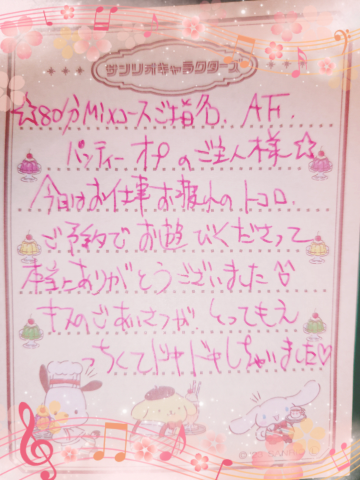 サンリオキャラクターズ
☆80分Mixコースご指名、AF、
パンティーオプのご主人様☆
今日はお仕事お疲れのトコロ、
ご予約でお遊びくださって
本当にありがとうございました
キスのごあいさつが、とってもえ
っちくてドキドキしちゃいました♡